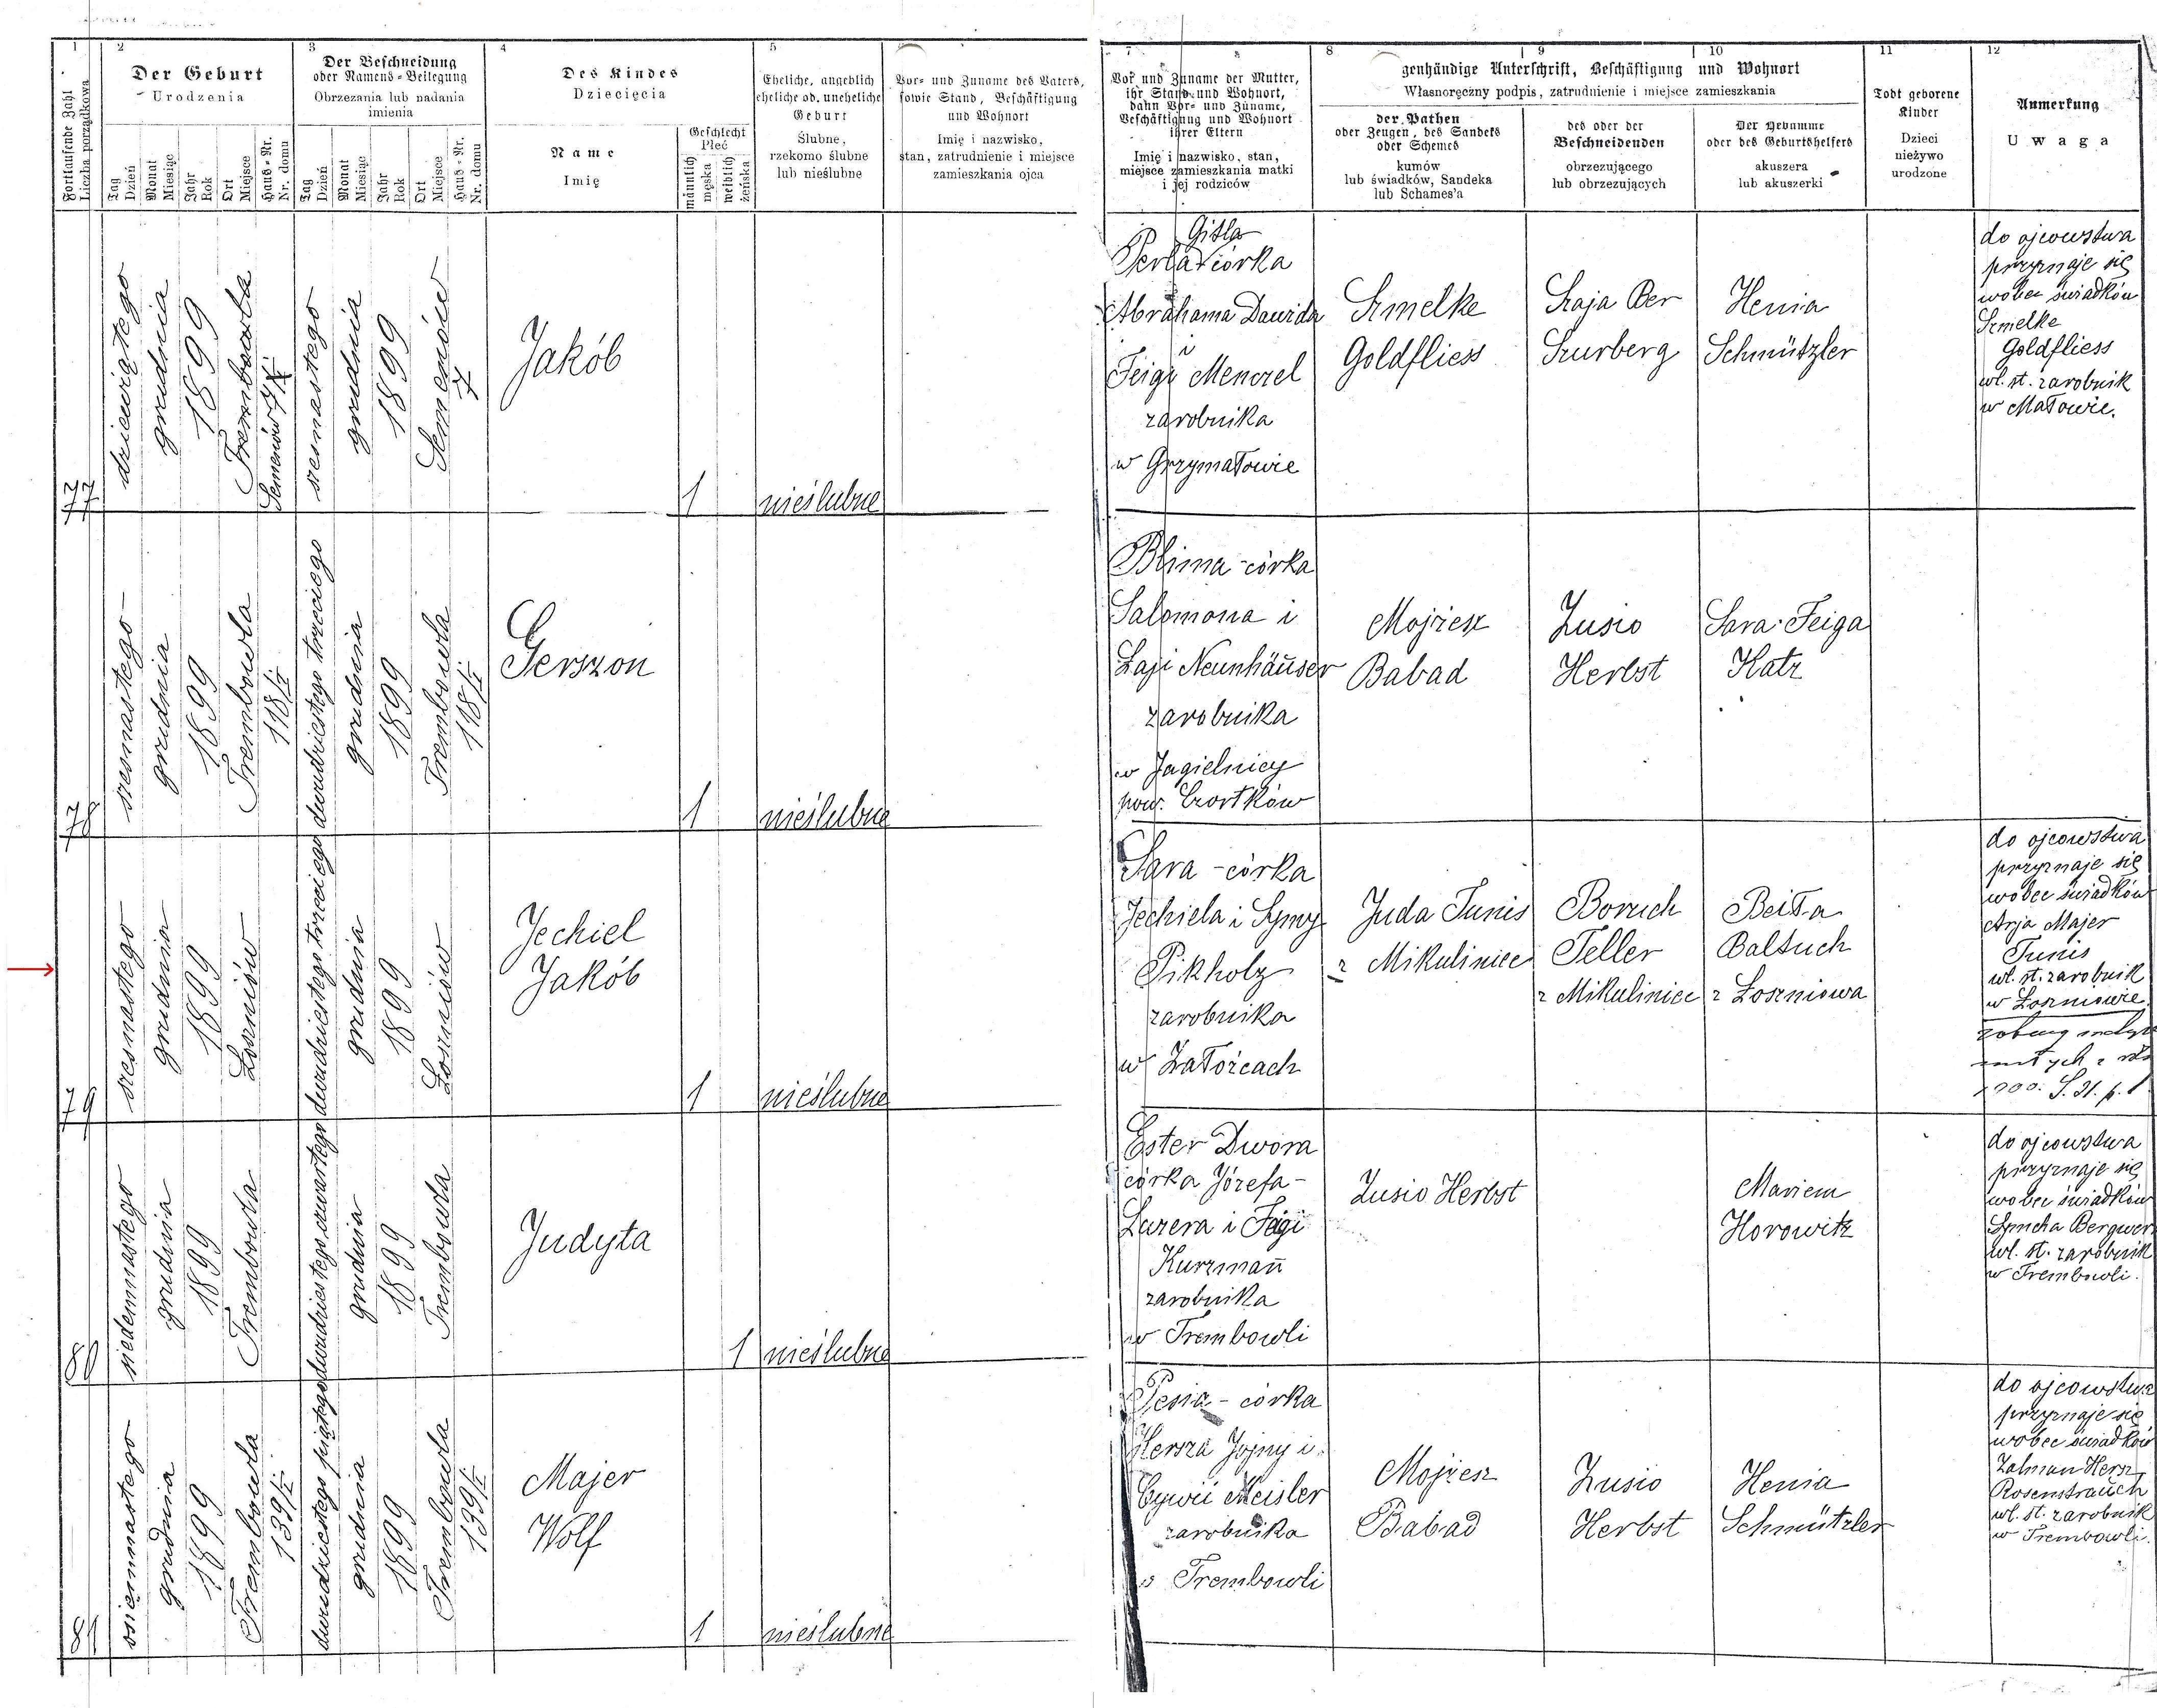 1
2
3
4
5
7
8
9
10
11
12
Fortlaufende Zahl
Liczba porządkowa
Der Geburt
Urodzenia
Tag
Dzień
Monat
Miesiąc
Jahr
Rok
Ort
Miejsce
Haus-Nr.
Nr. domu
Der Beschneidung
oder Namens-Beilegung
Obrzezania lub nadania
imienia
Tag
Dzień
Monat
Miesiąc
Jahr
Rok
Ort
Miejsce
Haus-Nr.
Nr. domu
Des Kindes
Dziecięcia
Name
Imię
Geschlecht
Płeć
männlich
męska
weiblich
żeńska
Eheliche, angeblich
eheliche od. uneheliche
Geburt
Ślubne,
rzekomo ślubne
lub nieślubne
Vor- und Zuname des Vaters,
sowie Stand, Beschäftigung
und Wohnort
Imię i nazwisko,
stan, zatrudnienie i miejsce
zamieszkania ojca
Vor und Zuname der Mutter,
ihr Stand und Wohnort,
dann Vor- und Zuname,
Beschäftigung und Wohnort
ihrer Eltern
Imię i nazwisko, stan,
miejsce zamieszkania matki
i jej rodziców
genhändige Unterschrift, Beschäftigung und Wohnort
Własnoręczny podpis, zatrudnienie i miejsce zamieszkania
der Pathen
oder Zeugen, des Sandeks
oder Schemes
kumów
lub świadków, Sandeka
lub Schames'a
des oder der
Beschneidenden
obrzezującego
lub obrzezujących
Der Hebamme
oder des Geburtshelfers
akuszera
lub akuszerki
Todt geborene
Kinder
Dzieci
nieżywo
urodzone
Anmerkung
Uwaga
77
dziewiątego
grudnia
1899
Trembowla
Semenów 7
szesnastego
grudnia
1899
Semenów
7
Jakób
1
nieślubne
Gitla
Perla córka
Abrahama Dawida
i
Feigi Menczel
zarobnika
w Grzymałowie
Szmelke
Goldfliess
Szaja Ber
Szurberg
Henia
Schmützler
do ojcowstwa
przyznaje się
wobec świadków
Szmelke
Goldfliess
wł. st. zarobnik
w Małowie.
78
szesnastego
grudnia
1899
Trembowla
118/I
dwudziestego trzeciego
grudnia
1899
Trembowla
118/I
Gerszon
1
nieślubne
Blima - córka
Salomona i
Łaji Neunhäuser
zarobnika
w Jagielnicy
pow. Czortków
Mojżesz
Babad
Zusio
Herbst
Sara Feiga
Katz
79
szesnastego
grudnia
1899
Łoszniów
dwudziestego trzeciego
grudnia
1899
Łoszniów
Jechiel
Jakób
1
nieślubne
Sara - córka
Jechiela i Symy
Pikholz
zarobnika
w Załoźcach
Juda Tunis
z Mikuliniec
Boruch
Teller
z Mikuliniec
Beiła
Baltuch
z Łoszniowa
do ojcowstwa
przyznaje się
wobec świadków
Arja Majer
Tunis
wł. st. zarobnik
w Łoszniowie
80
siedemnastego
grudnia
1899
Trembowla
dwudziestego czwartego
grudnia
1899
Trembowla
Judyta
1
nieślubne
Ester Dwora
córka Józefa -
Lazera i Fägi
Kurzmañ
zarobnika
w Trembowli
Zusio Herbst
Mariem
Horowitz
do ojcowstwa
przyznaje się
wobec świadków
Symcha
wł. st. zarobnik
w Trembowli.
81
osiemnastego
grudnia
1899
Trembowla
139/I
dwudziestego piątego
grudnia
1899
Trembowla
139/I
Majer
Wolf
1
nieślubne
Pesia - córka
Hersza Jojny i
Cywii Meisler
zarobnika
w Trembowli
Mojżesz
Babad
Zusio
Herbst
Henia
Schmützler
do ojcowstwa
przyznaje się
wobec świadków
Zalman Hersz
Rosenstrauch
wł. st. zarobnik
w Trembowli.